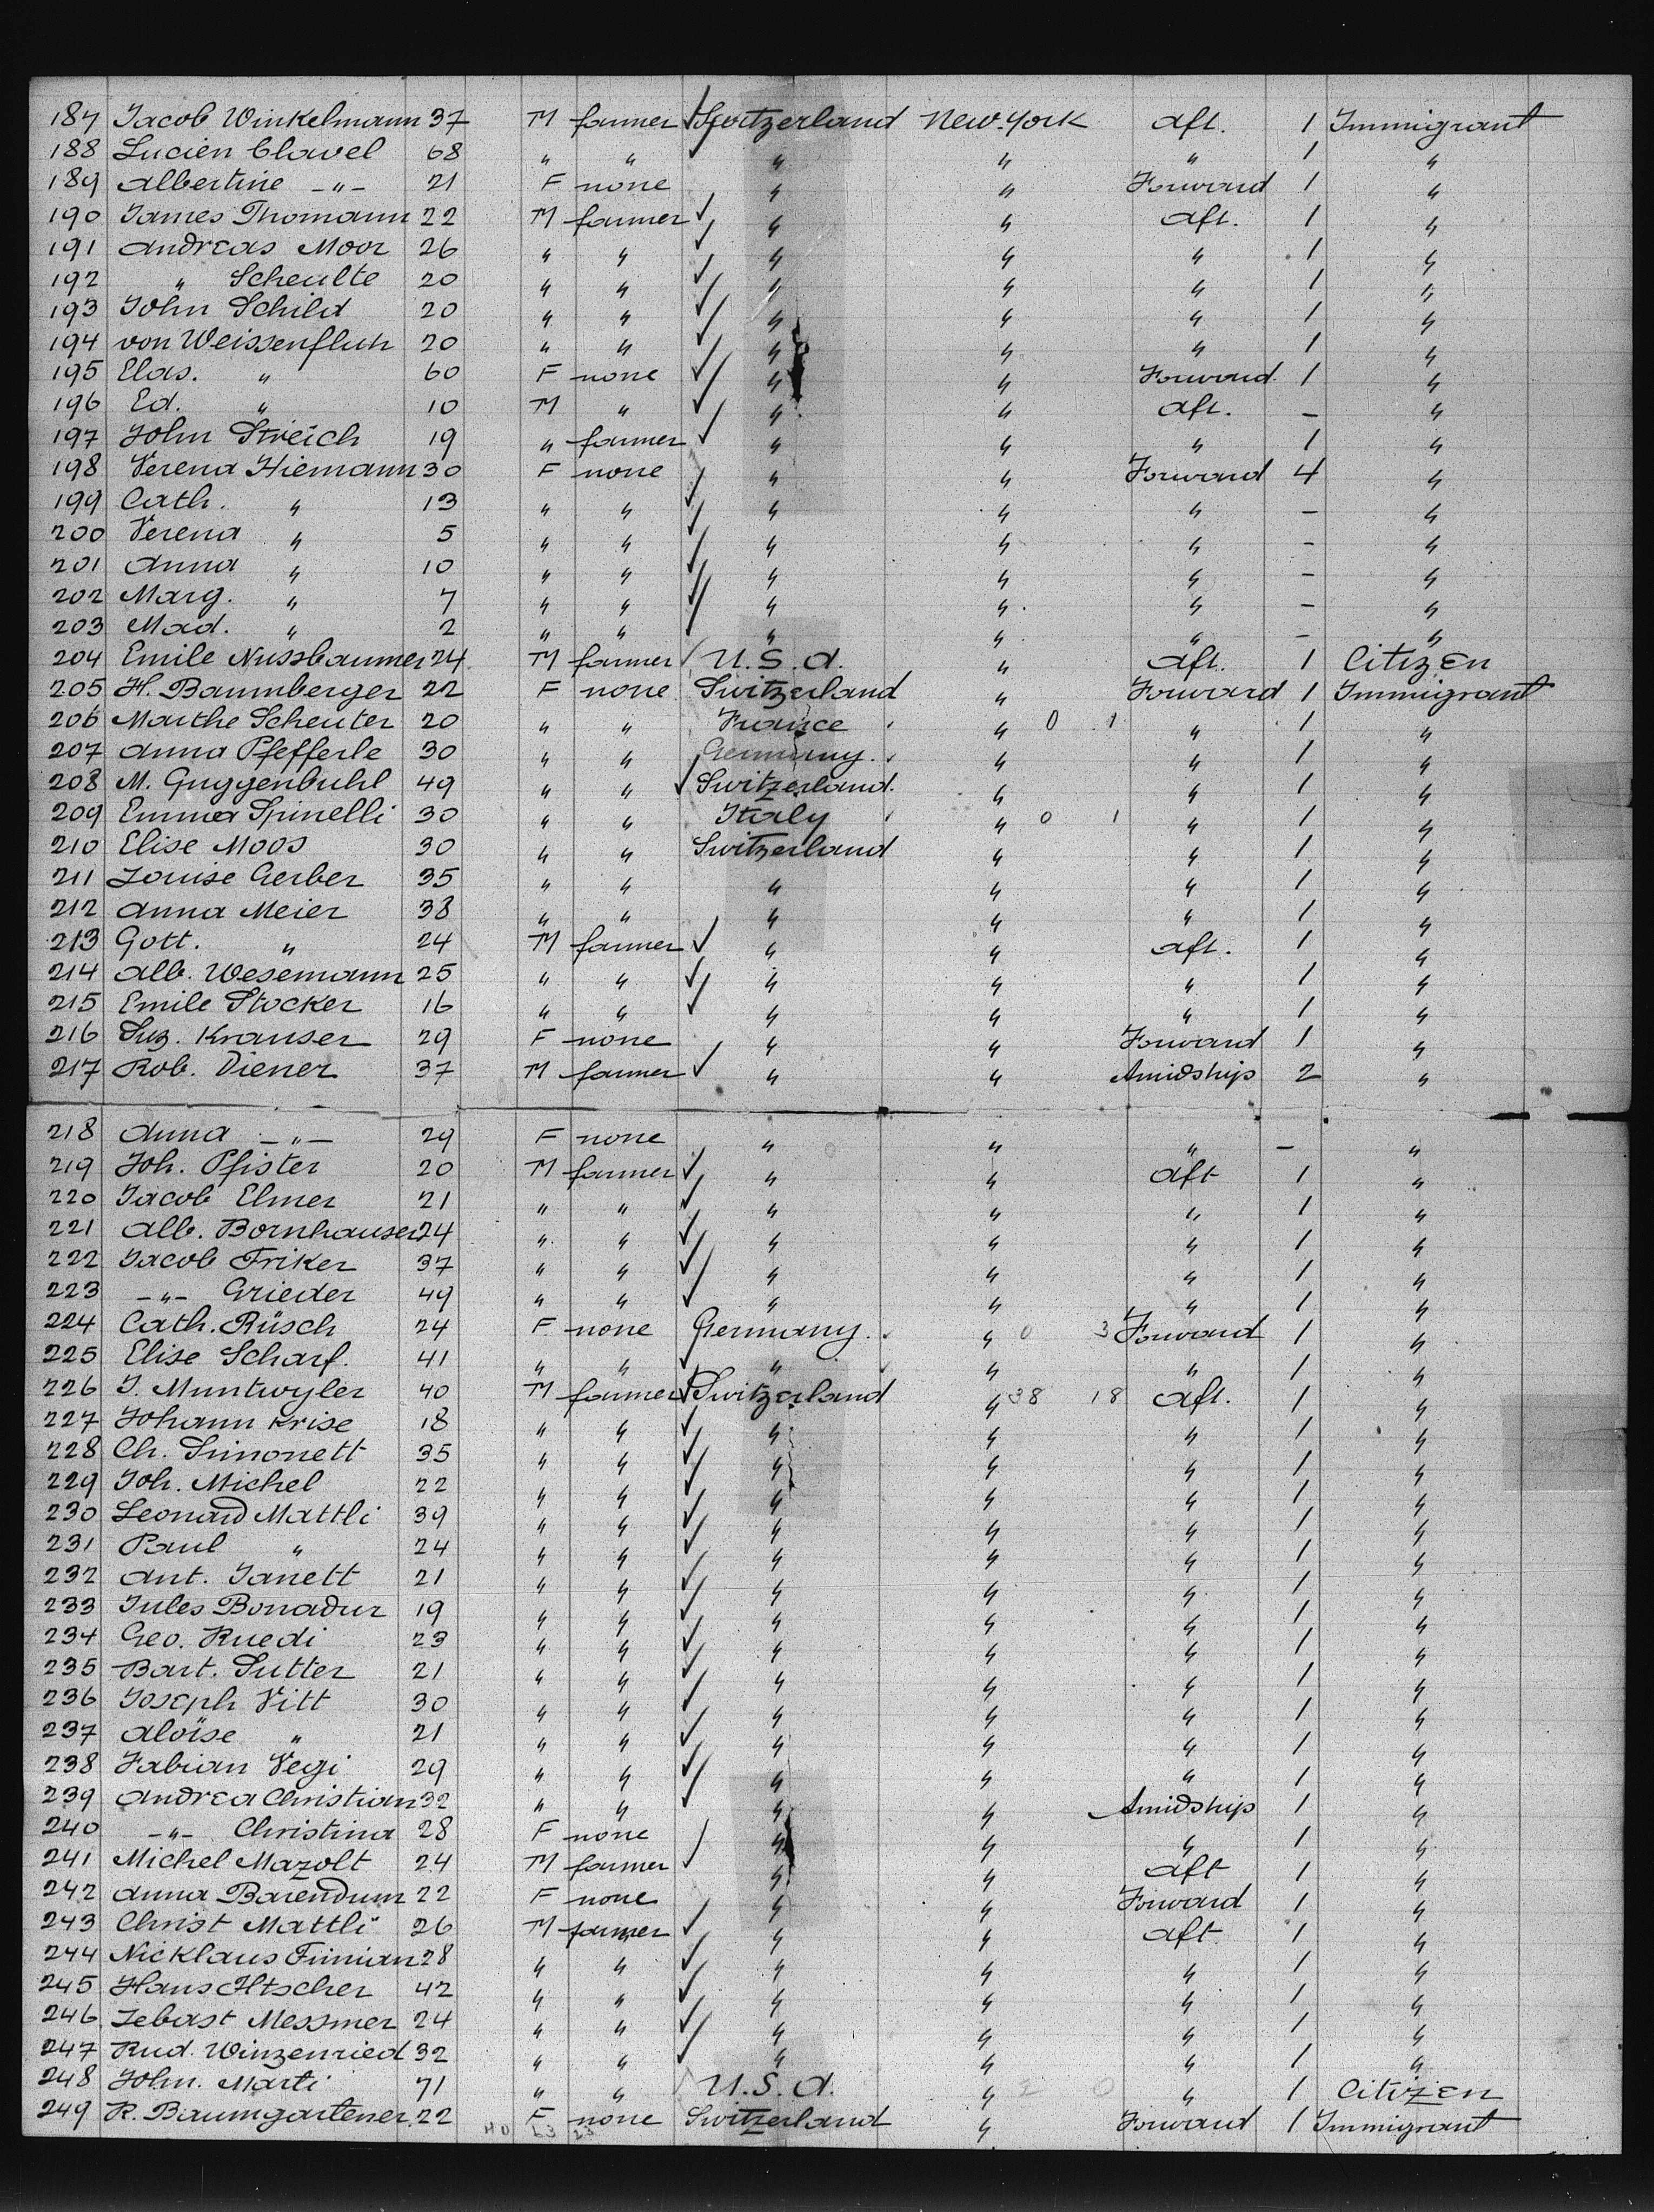 187 Jacob Winkelmann 37 M farmer Switzerland New-York aft. 1 Immigrant
188 Lucien Clavel 68 " " " " " 1 "
189 Albertine -"- 21 F none " " Forward 1 "
190 James Thomann 22 M farmer " " aft. 1 "
191 Andreas Moor 26 " " " " " 1 "
192 " Scheulte 20 " " " " " 1 "
193 John Schild 20 " " " " " 1 "
194 von Weissenfluh 20 " " " " " 1 "
195 Elas. " 60 F none " " Forward 1 "
196 Ed. " 10 M " " " aft. - "
197 John Streich 19 " farmer " " " 1 "
198 Verena Hiemann 30 F none " " Forward 4 "
199 Cath. " 13 " " " " " - "
200 Verena " 5 " " " " " - "
201 Anna " 10 " " " " " - "
202 Marg. " 7 " " " " " - "
203 Mad. " 2 " " " " " - "
204 Emile Nussbaumer 24 M farmer U.S.A. " aft. 1 Citizen
205 H. Baumberger 22 F none Switzerland " Forward 1 Immigrant
206 Marthe Scheuter 20 " " France " 0 1 " 1 "
207 Anna Pfefferle 30 " " Germany. " " 1 "
208 M. Guggenbuhl 49 " " Switzerland. " " 1 "
209 Emma Spinelli 30 " " Italy " 0 1 " 1 "
210 Elise Moos 30 " " Switzerland " " 1 "
211 Louise Gerber 35 " " " " " 1 "
212 Anna Meier 38 " " " " " 1 "
213 Gott. " 24 M farmer " " aft. 1 "
214 Alb. Wesemann 25 " " " " " 1 "
215 Emile Stocker 16 " " " " " 1 "
216 Suz. Krauser 29 F none " " Forward 1 "
217 Rob. Diener 37 M farmer " " Amidship 2 "
218 Anna -"- 29 F none " " " - "
219 Joh. Pfister 20 M farmer " " aft 1 "
220 Jacob Elmer 21 " " " " " 1 "
221 Alb. Bornhauser 24 " " " " " 1 "
222 Jacob Friker 37 " " " " " 1 "
223 -"- Grieder 49 " " " " " 1 "
224 Cath. Rüsch 24 F none Germany. " 0 3 Forward 1 "
225 Elise Scharf. 41 " " " " " 1 "
226 J. Muntwyler 40 M farmer Switzerland " 38 18 aft. 1 "
227 Johann Krise 18 " " " " " 1 "
228 Ch. Simonett 35 " " " " " 1 "
229 Joh. Michel 22 " " " " " 1 "
230 Leonard Mattli 39 " " " " " 1 "
231 Paul " 24 " " " " " 1 "
232 Ant. Janett 21 " " " " " 1 "
233 Jules Bonadur 19 " " " " " 1 "
234 Geo. Ruedi 23 " " " " " 1 "
235 Bart. Sutter 21 " " " " " 1 "
236 Joseph Vitt 30 " " " " " 1 "
237 Aloïse " 21 " " " " " 1 "
238 Fabian Vegi 29 " " " " " 1 "
239 Andrea Christian 32 " " " " Amidship 1 "
240 -"- Christina 28 F none " " " 1 "
241 Michel Mazolt 24 M farmer " " aft 1 "
242 Anna Barendum 22 F none " " Forward 1 "
243 Christ Mattli 26 M farmer " " aft 1 "
244 Nicklaus Finnian 28 " " " " " 1 "
245 Hans Htscher 42 " " " " " 1 "
246 Sebast Messmer 24 " " " " " 1 "
247 Rud. Winzenried 32 " " " " " 1 "
248 John. Marti 71 " " U.S.A. " 2 0 " 1 Citizen
249 R. Baumgartener 22 F none Switzerland " Forward 1 Immigrant